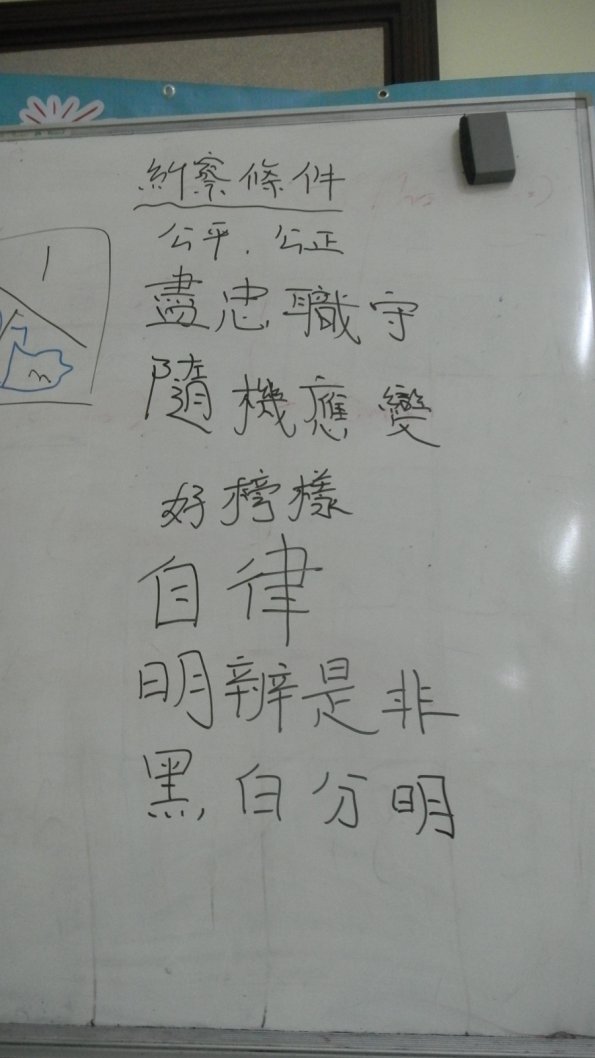 糾察條件
公平.公正
盡忠職守
隨機應變
好榜樣
自律
明辨是非
黑白分明